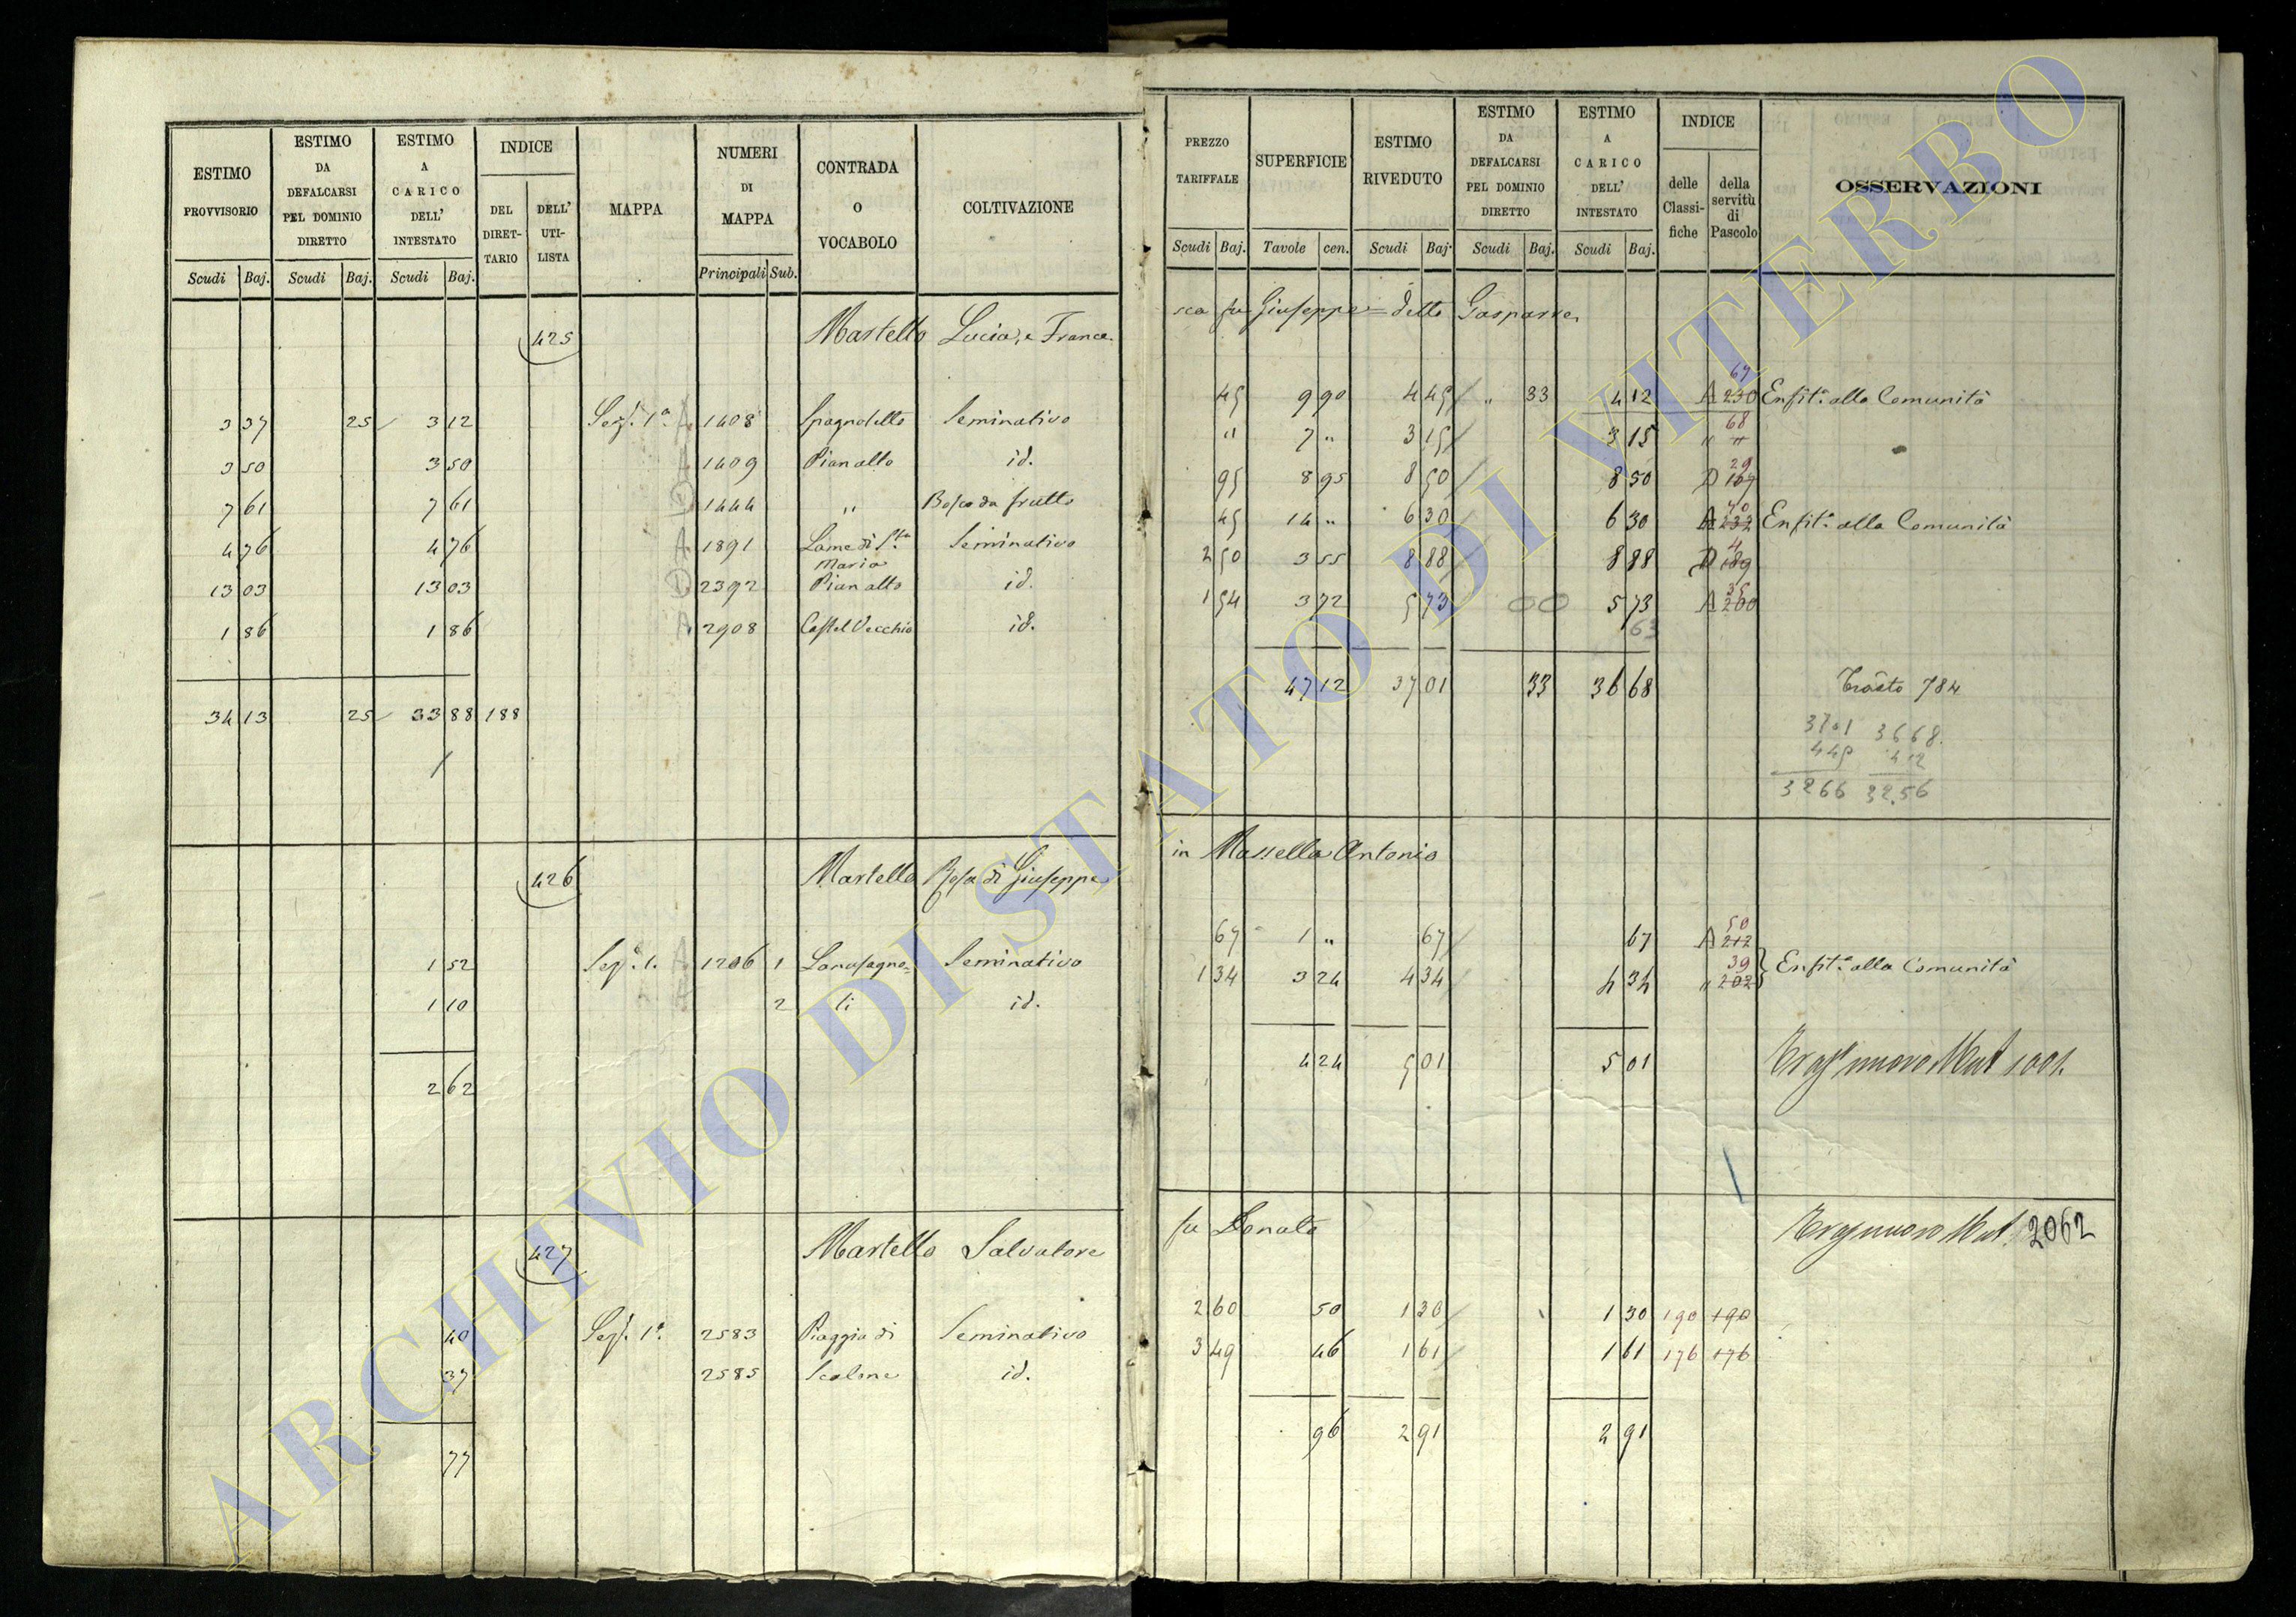 ESTIMO PROVVISORIO | ESTIMO DA DEFALCARSI PEL DOMINIO DIRETTO | ESTIMO A CARICO DELL' INTESTATO | INDICE | MAPPA | NUMERI DI MAPPA | CONTRADA O VOCABOLO | COLTIVAZIONE
DEL DIRETTARIO | DELL' UTILISTA
Scudi | Baj. | Scudi | Baj. | Scudi | Baj. | Principali | Sub.
425 | Martello Lucia, e France.
3 37 | 25 | 3 12 | Sez. 1a A | 1408 | Spagnoletto | Seminativo
3 50 | 3 50 | A | 1409 | Pian alto | id.
7 61 | 7 61 | D | 1444 | " | Bosco da frutto
4 76 | 4 76 | A | 1891 | Lame di Sta Maria | Seminativo
13 03 | 13 03 | D | 2392 | Pian alto | id.
1 86 | 1 86 | A | 2908 | Castel Vecchio | id.
34 13 | 25 | 33 88 | 188
426 | Martello Rosa di Giuseppe
1 52 | Sez. 1. A | 1206 | 1 | Seminativo
1 10 | 2 | li | id.
2 62
427 | Martello Salvatore
40 | Sez. 1a | 2583 | Piaggia di | Seminativo
37 | 2585 | Scalone | id.
77
PREZZO TARIFFALE | SUPERFICIE | ESTIMO RIVEDUTO | ESTIMO DA DEFALCARSI PEL DOMINIO DIRETTO | ESTIMO A CARICO DELL' INTESTATO | INDICE | OSSERVAZIONI
delle Classifiche | della servitù di Pascolo
Scudi | Baj. | Tavole | cen. | Scudi | Baj. | Scudi | Baj. | Scudi | Baj.
sca fu Giuseppe = detto Gasparre
45 | 9 90 | 4 45 | " 33 | 4 12 | A 230 67 | Enfit.a alla Comunità
" | 7 " | 3 15 | 3 15 | " " 68
95 | 8 95 | 8 50 | 8 50 | D 167 29
45 | 14 " | 6 30 | 6 30 | A 232 70 | Enfit.a alla Comunità
2 50 | 3 55 | 8 88 | 8 88 | D 189 4
1 54 | 3 72 | 5 73 | 00 | 5 73 | A 200 35
63
47 12 | 37 01 | 33 | 36 68 | Trasto 784
3701 3668
445 412
3266 3256
in Massella Antonio
67 | 1 " | 67 | 67 | A 212 50
1 34 | 3 24 | 4 34 | 4 34 | " 202 39 | Enfit.a alla Comunità
4 24 | 5 01 | 5 01 | nuovo Mat 1001.
fu Donato | nuovo Mat. 2062
2 60 | 50 | 1 30 | 1 30 | 190 | 190
3 49 | 46 | 1 61 | 1 61 | 176 | 176
96 | 2 91 | 2 91
ARCHIVIO DI STATO DI VITERBO